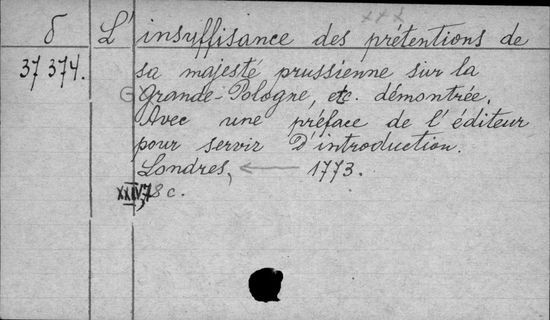 x x x
б L'insuffisance des prétentions de
37 374. sa majesté prussienne sur la
Grande-Pologne, etc. démontrée.
Avec une préface de l'éditeur
pour servir D'introduction.
Londres, 1773.
78 c.